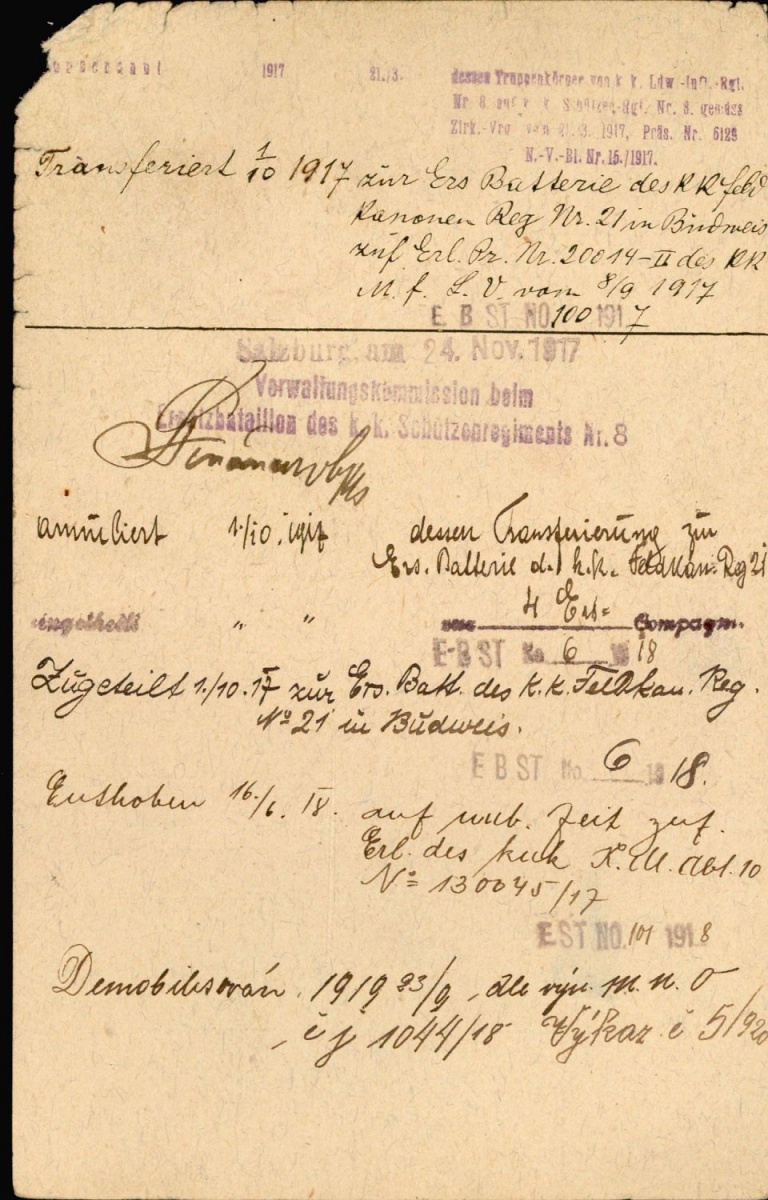 1917 21./3. dessen Truppenkörper von k. k. Ldw.-Inft.-Rgt.
Nr. 8 auf k. k. Schützen-Rgt. Nr. 8. gemäss
Zirk.-Vrg. vom 21./3. 1917, Präs. Nr. 6129
N.-V.-Bl. Nr. 15./1917.
Transferiert 1/10 1917 zur Ers Batterie des KK Feld
Kanonen Reg Nr. 21 in Budweis
zuf Erl. Pr. Nr. 20014-II des KK
M. f. L. V. vom 8/9 1917
E B ST NO 100 1917
Salzburg, am 24. Nov. 1917
Verwaltungskommission beim
Ersatzbataillon des k. k. Schützenregiments Nr. 8
annulliert 1./10. 1917 dessen Transferierung zur
Ers. Batterie d. k. k. Feldkan. Reg 21
eingetheilt " " zur 4 Ers= Compagn.
E-B ST No 6 1918
Zugeteilt 1./10. 17 zur Ers. Batt. des K. K. Feldkan. Reg.
No 21 in Budweis.
E B ST No 6 1918.
Enthoben 16./6. 18. auf unb. Zeit zuf.
Erl. des kuk K. M. Abt. 10
No 130045/17
E ST NO. 101 1918
Demobilisován 1919 23/9, dle výn. m. n. O
č j 1044/18 Výkaz č 5/920